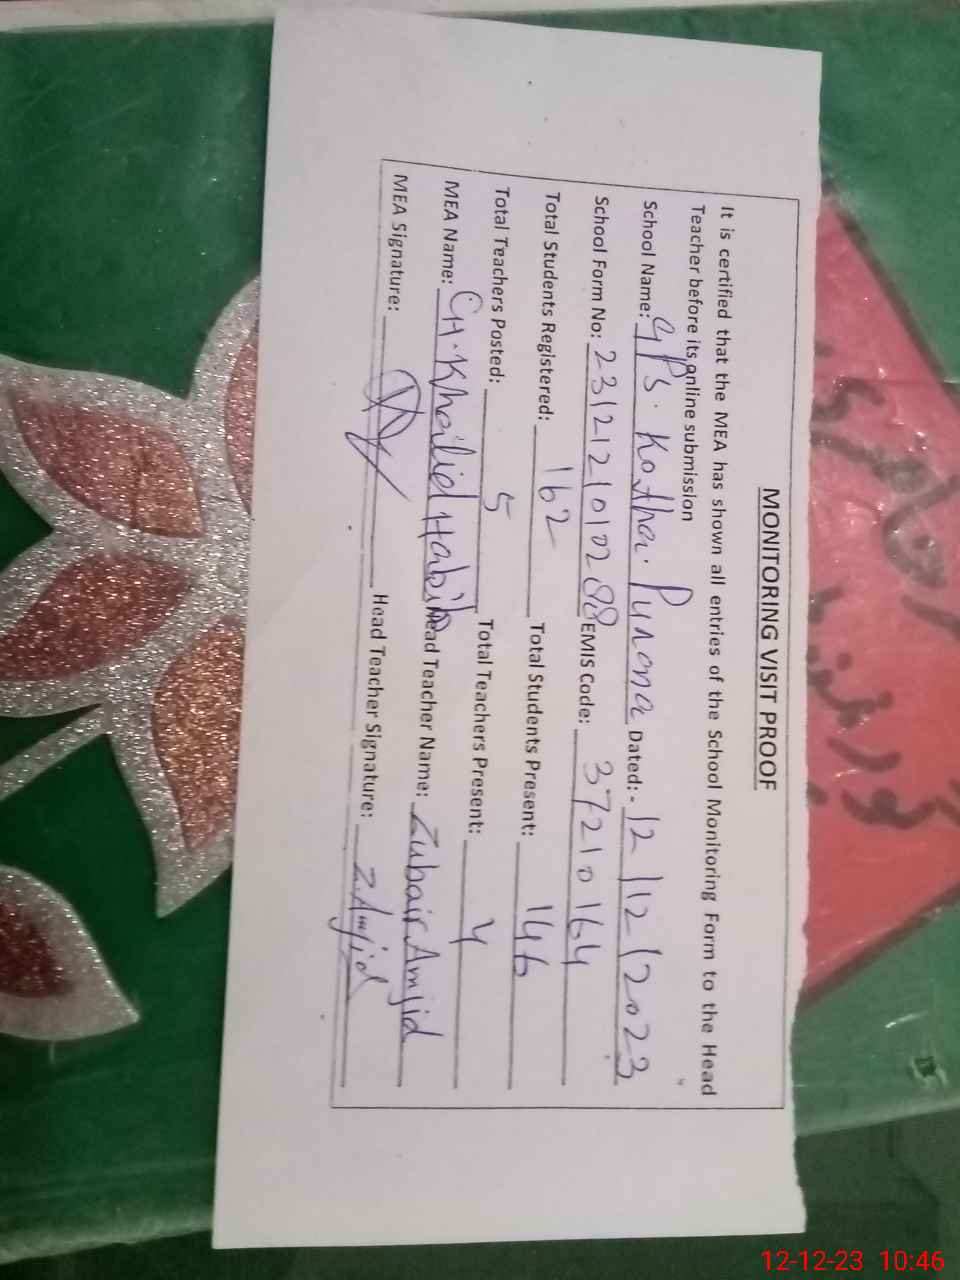 MONITORING VISIT PROOF
It is certified that the MEA has shown all entries of the School Monitoring Form to the Head
Teacher before its online submission
School Name: GPS. Kotha. Punona Dated:- 12/12/2023
School Form No: 2312121010288 EMIS Code: 37210164
Total Students Registered: 162 Total Students Present: 146
Total Teachers Posted: 5 Total Teachers Present: 4
MEA Name: CH. Khalid Habib Head Teacher Name: Zubair Amjid
MEA Signature: Head Teacher Signature: Z.Amjid
12-12-23 10:46